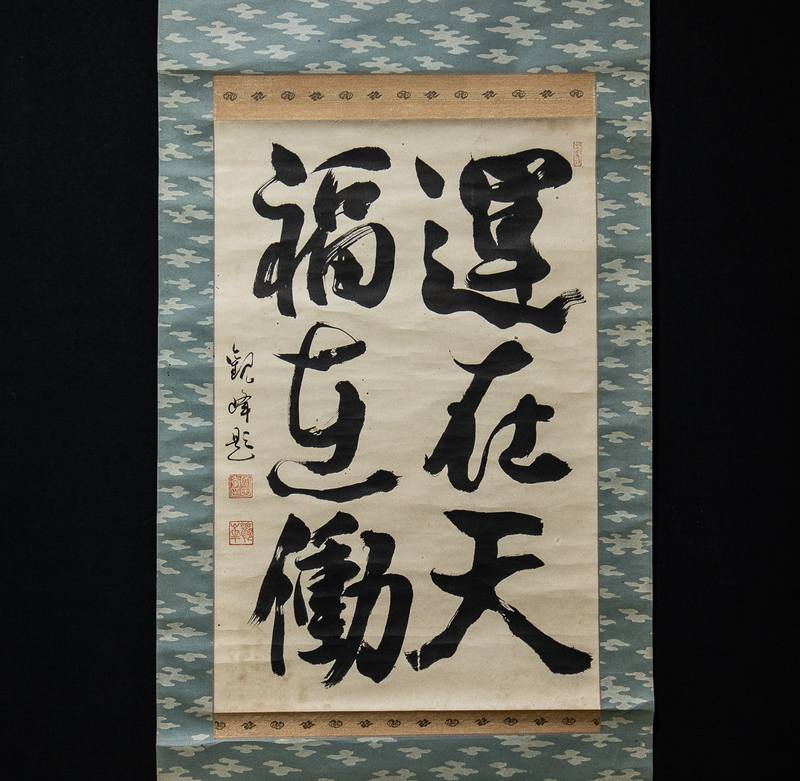 運在天
福在働
観峰題